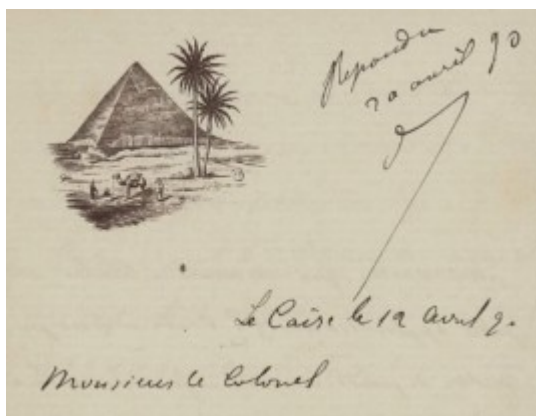 Repondu
20 avril 90
Le Caire le 12 Avril 90
Monsieur le Colonel